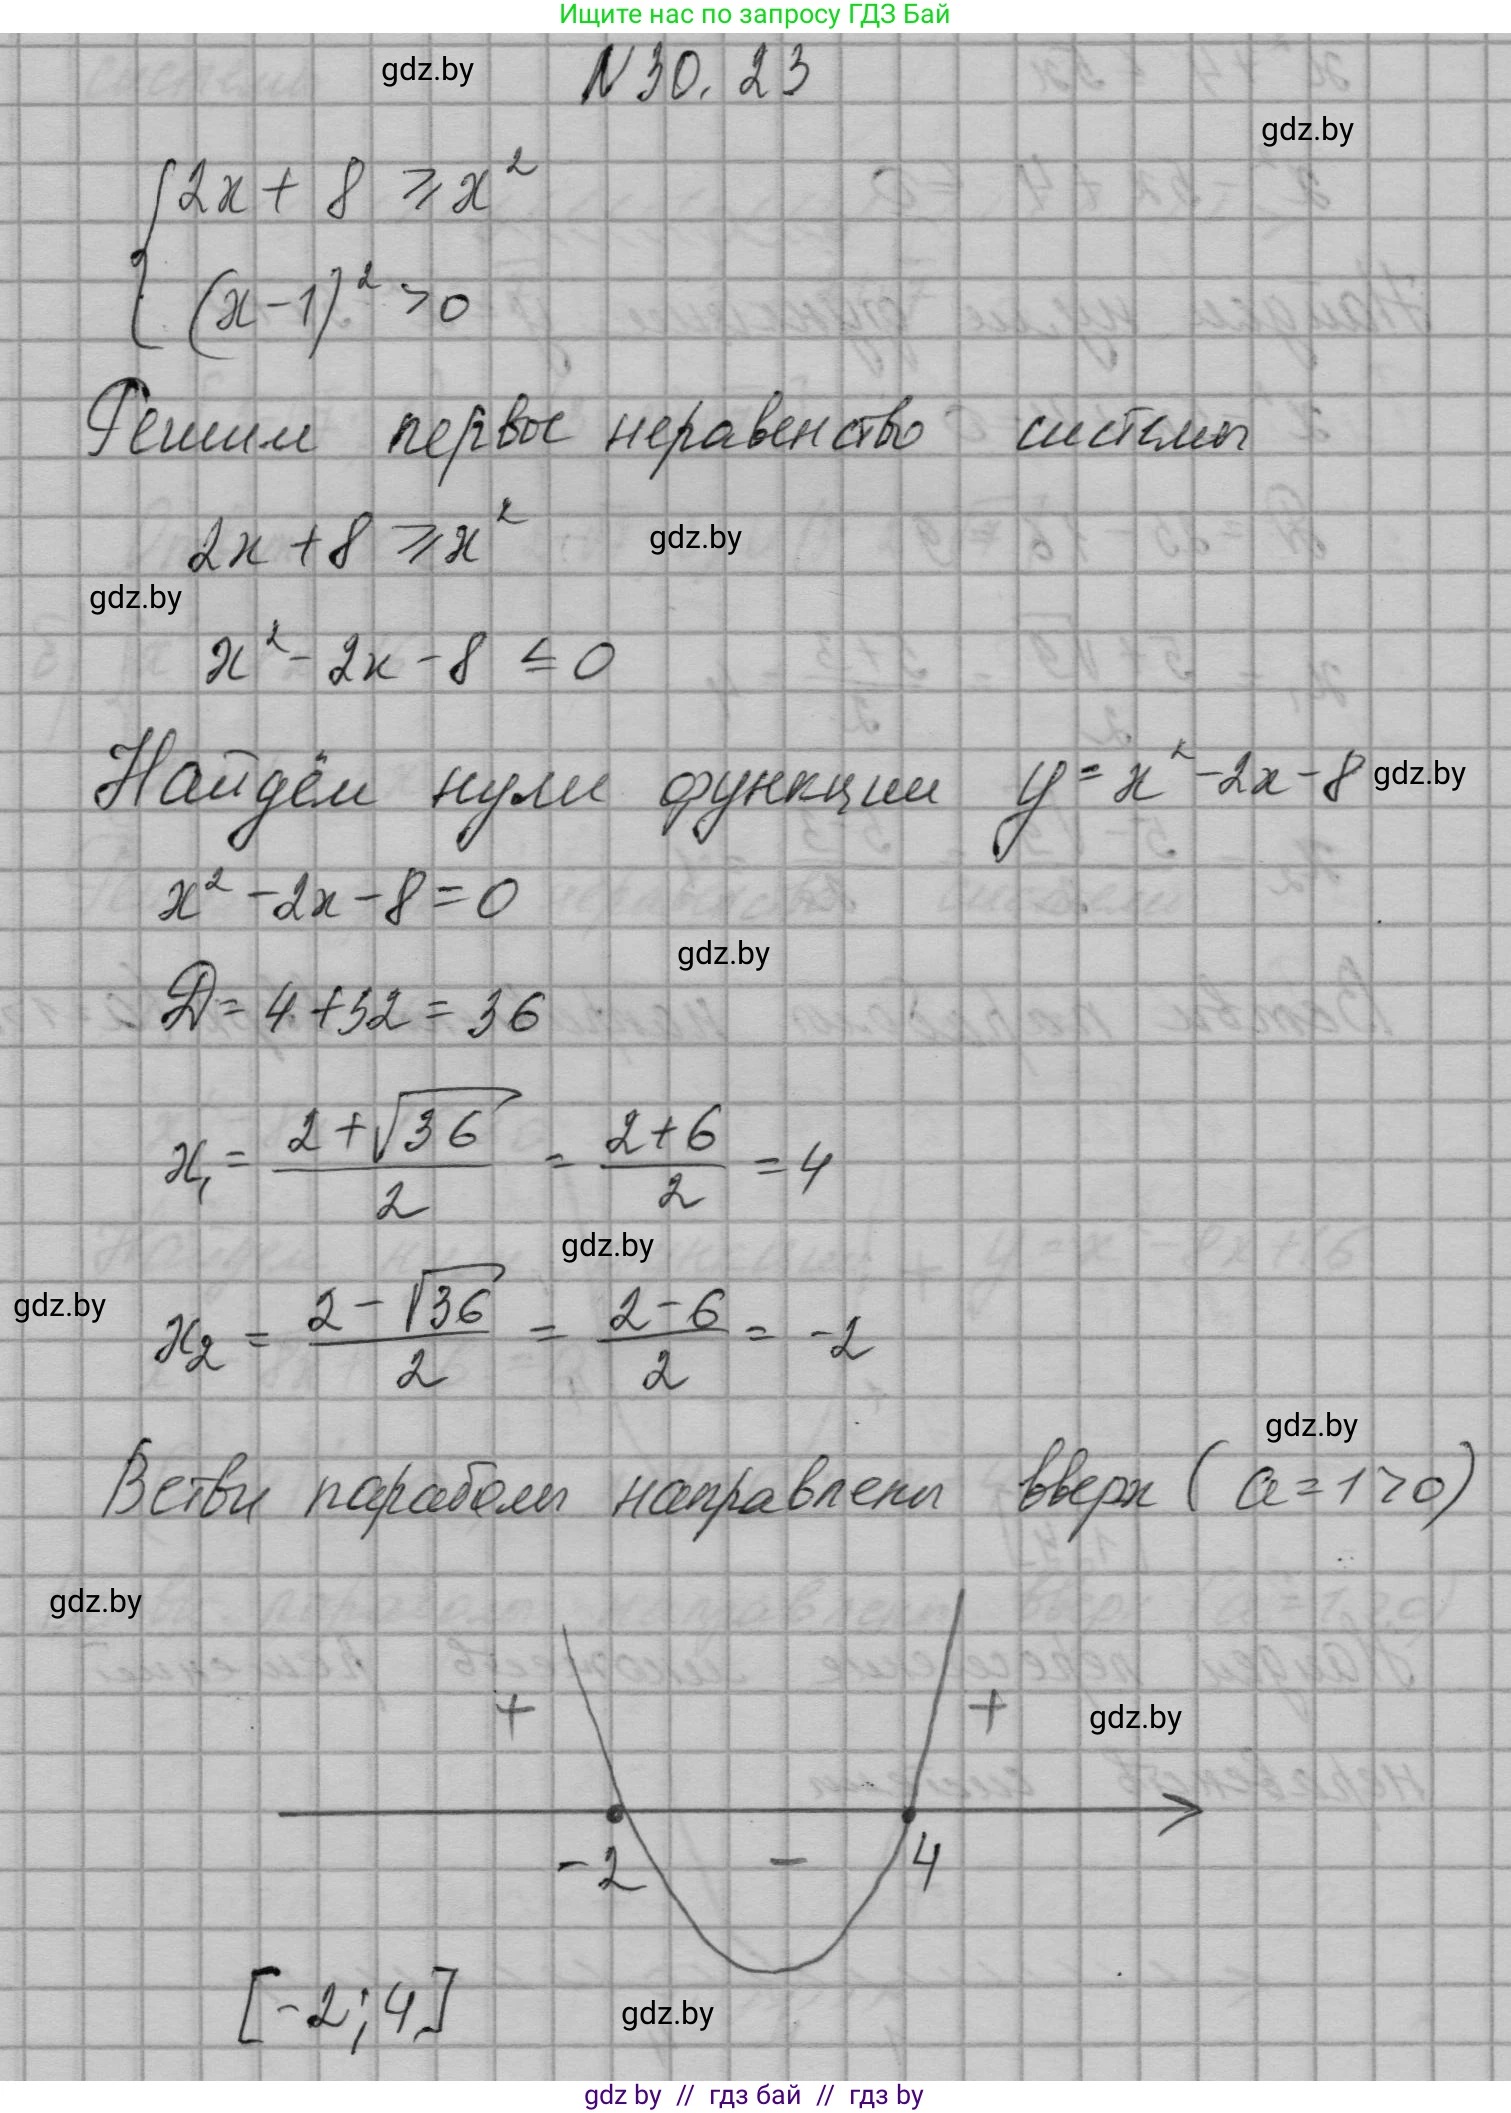 Ищите нас по запросу ГДЗ Бай
gdz.by
N 30. 23
gdz.by
{ 2x + 8 ⩾ x²
(x-1)² > 0
Решим первое неравенство системы
2x + 8 ⩾ x²
gdz.by
gdz.by
x² - 2x - 8 ≤ 0
Найдём нули функции y = x² - 2x - 8
gdz.by
x² - 2x - 8 = 0
gdz.by
D = 4 + 32 = 36
x₁ = (2 + √36)/2 = (2 + 6)/2 = 4
gdz.by
gdz.by
x₂ = (2 - √36)/2 = (2 - 6)/2 = -2
gdz.by
Ветви параболы направлены вверх ( a = 1 > 0)
gdz.by
+ +
gdz.by
-2 - 4
[-2; 4]
gdz.by
gdz by // гдз бай // гдз by